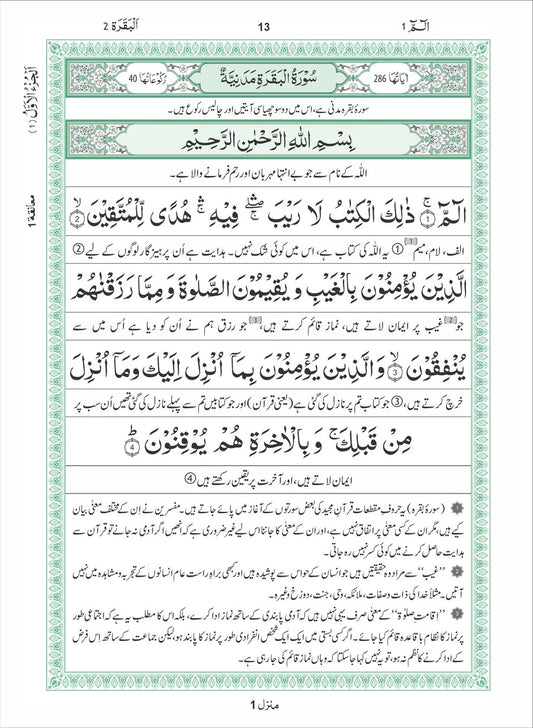 الٓـمّٓ ۱
13
اَلْبَقَرَة 2
اَلْجُزْءُ الْاَوَّلُ (۱)
معانقة 1
اٰيَاتُهَا 286
سُوْرَةُ الْبَقَرَةِ مَدَنِيَّةٌ
رُكُوْعَاتُهَا 40
سورۂ بقرہ مدنی ہے، اس میں دو سو چھیاسی آیتیں اور چالیس رکوع ہیں۔
بِسْمِ اللّٰهِ الرَّحْمٰنِ الرَّحِيْمِ
اللہ کے نام سے جو بے انتہا مہربان اور رحم فرمانے والا ہے۔
الٓـمّٓ ۚ ① ذٰلِكَ الْكِتٰبُ لَا رَيْبَ ۛۖ فِيْهِ ۛۚ هُدًى لِّلْمُتَّقِيْنَ ۙ ②
الف، لام، میم [1] ① یہ اللہ کی کتاب ہے، اس میں کوئی شک نہیں۔ ہدایت ہے اُن پرہیز گار لوگوں کے لیے ②
الَّذِيْنَ يُؤْمِنُوْنَ بِالْغَيْبِ وَ يُقِيْمُوْنَ الصَّلٰوةَ وَ مِمَّا رَزَقْنٰهُمْ
جو [2] غیب پر ایمان لاتے ہیں، نماز قائم کرتے ہیں، [3] جو رزق ہم نے اُن کو دیا ہے اُس میں سے
يُنْفِقُوْنَ ۙ ③ وَالَّذِيْنَ يُؤْمِنُوْنَ بِمَاۤ اُنْزِلَ اِلَيْكَ وَمَاۤ اُنْزِلَ
خرچ کرتے ہیں، ③ جو کتاب تم پر نازل کی گئی ہے (یعنی قرآن) اور جو کتابیں تم سے پہلے نازل کی گئی تھیں اُن سب پر
مِنْ قَبْلِكَ ۚ وَ بِالْاٰخِرَةِ هُمْ يُوْقِنُوْنَ ؕ ④
ایمان لاتے ہیں، اور آخرت پر یقین رکھتے ہیں ④
(سورۂ بقرہ) یہ حروف مقطعات قرآن مجید کی بعض سورتوں کے آغاز میں پائے جاتے ہیں۔ مفسرین نے ان کے مختلف معنٰی بیان
کیے ہیں، مگر ان کے کسی معنٰی پر اتفاق نہیں ہے، اور ان کے معنٰی کا جاننا اس لیے غیر ضروری ہے کہ انھیں اگر آدمی نہ جانے تو قرآن سے
ہدایت حاصل کرنے میں کوئی کسر نہیں رہ جاتی۔
”غیب“ سے مراد وہ حقیقتیں ہیں جو انسان کے حواس سے پوشیدہ ہیں اور کبھی براہِ راست عام انسانوں کے تجربہ و مشاہدہ میں نہیں
آتیں۔ مثلاً خدا کی ذات وصفات، ملائکہ، وحی، جنت، دوزخ وغیرہ۔
”اقامتِ صلوٰۃ“ کے معنٰی صرف یہی نہیں ہیں کہ آدمی پابندی کے ساتھ نماز ادا کرے، بلکہ اس کا مطلب یہ ہے کہ اجتماعی طور
پر نماز کا نظام باقاعدہ قائم کیا جائے۔ اگر کسی بستی میں ایک ایک شخص انفرادی طور پر نماز کا پابند ہو، لیکن جماعت کے ساتھ اِس فرض
کے ادا کرنے کا نظم نہ ہو، تو یہ نہیں کہا جا سکتا کہ وہاں نماز قائم کی جا رہی ہے۔
منزل 1